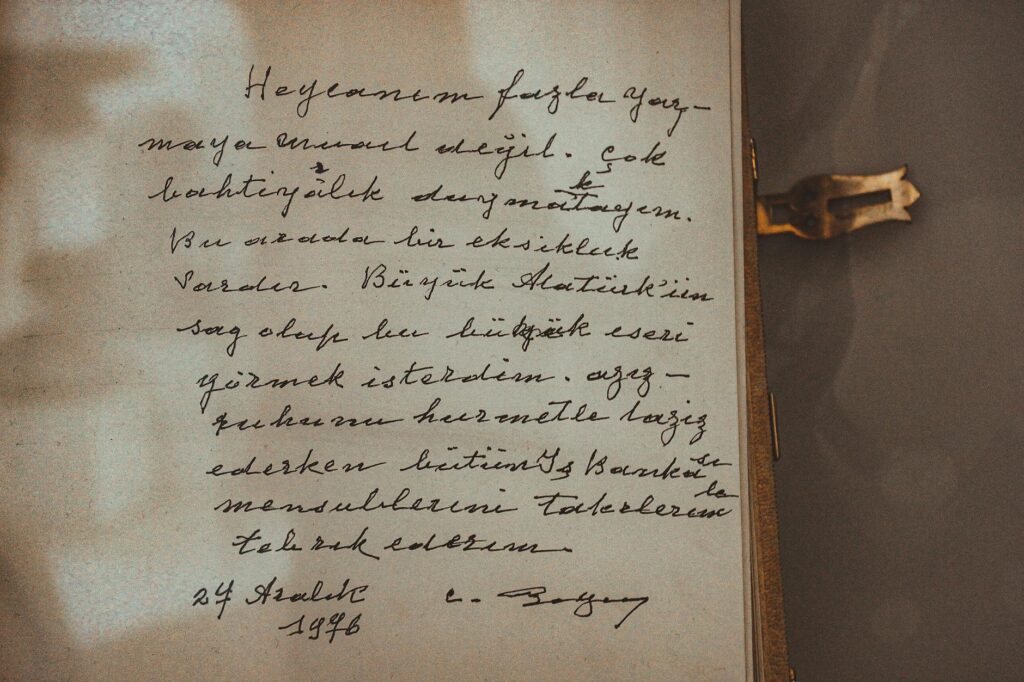 Heycanım fazla yaz-
maya muail değil. Çok
bahtiyârlık duymaktayım.
Bu arada bir eksikluk
vardır. Büyük Atatürk'ün
sag olup bu büyük eseri
görmek isterdim. aziz-
ruhunu hurmetle taziz
ederken bütün İş Bankası
mensublerini takdirlerimle
tebrik ederim.
27 Aralık C. Bayar
1976